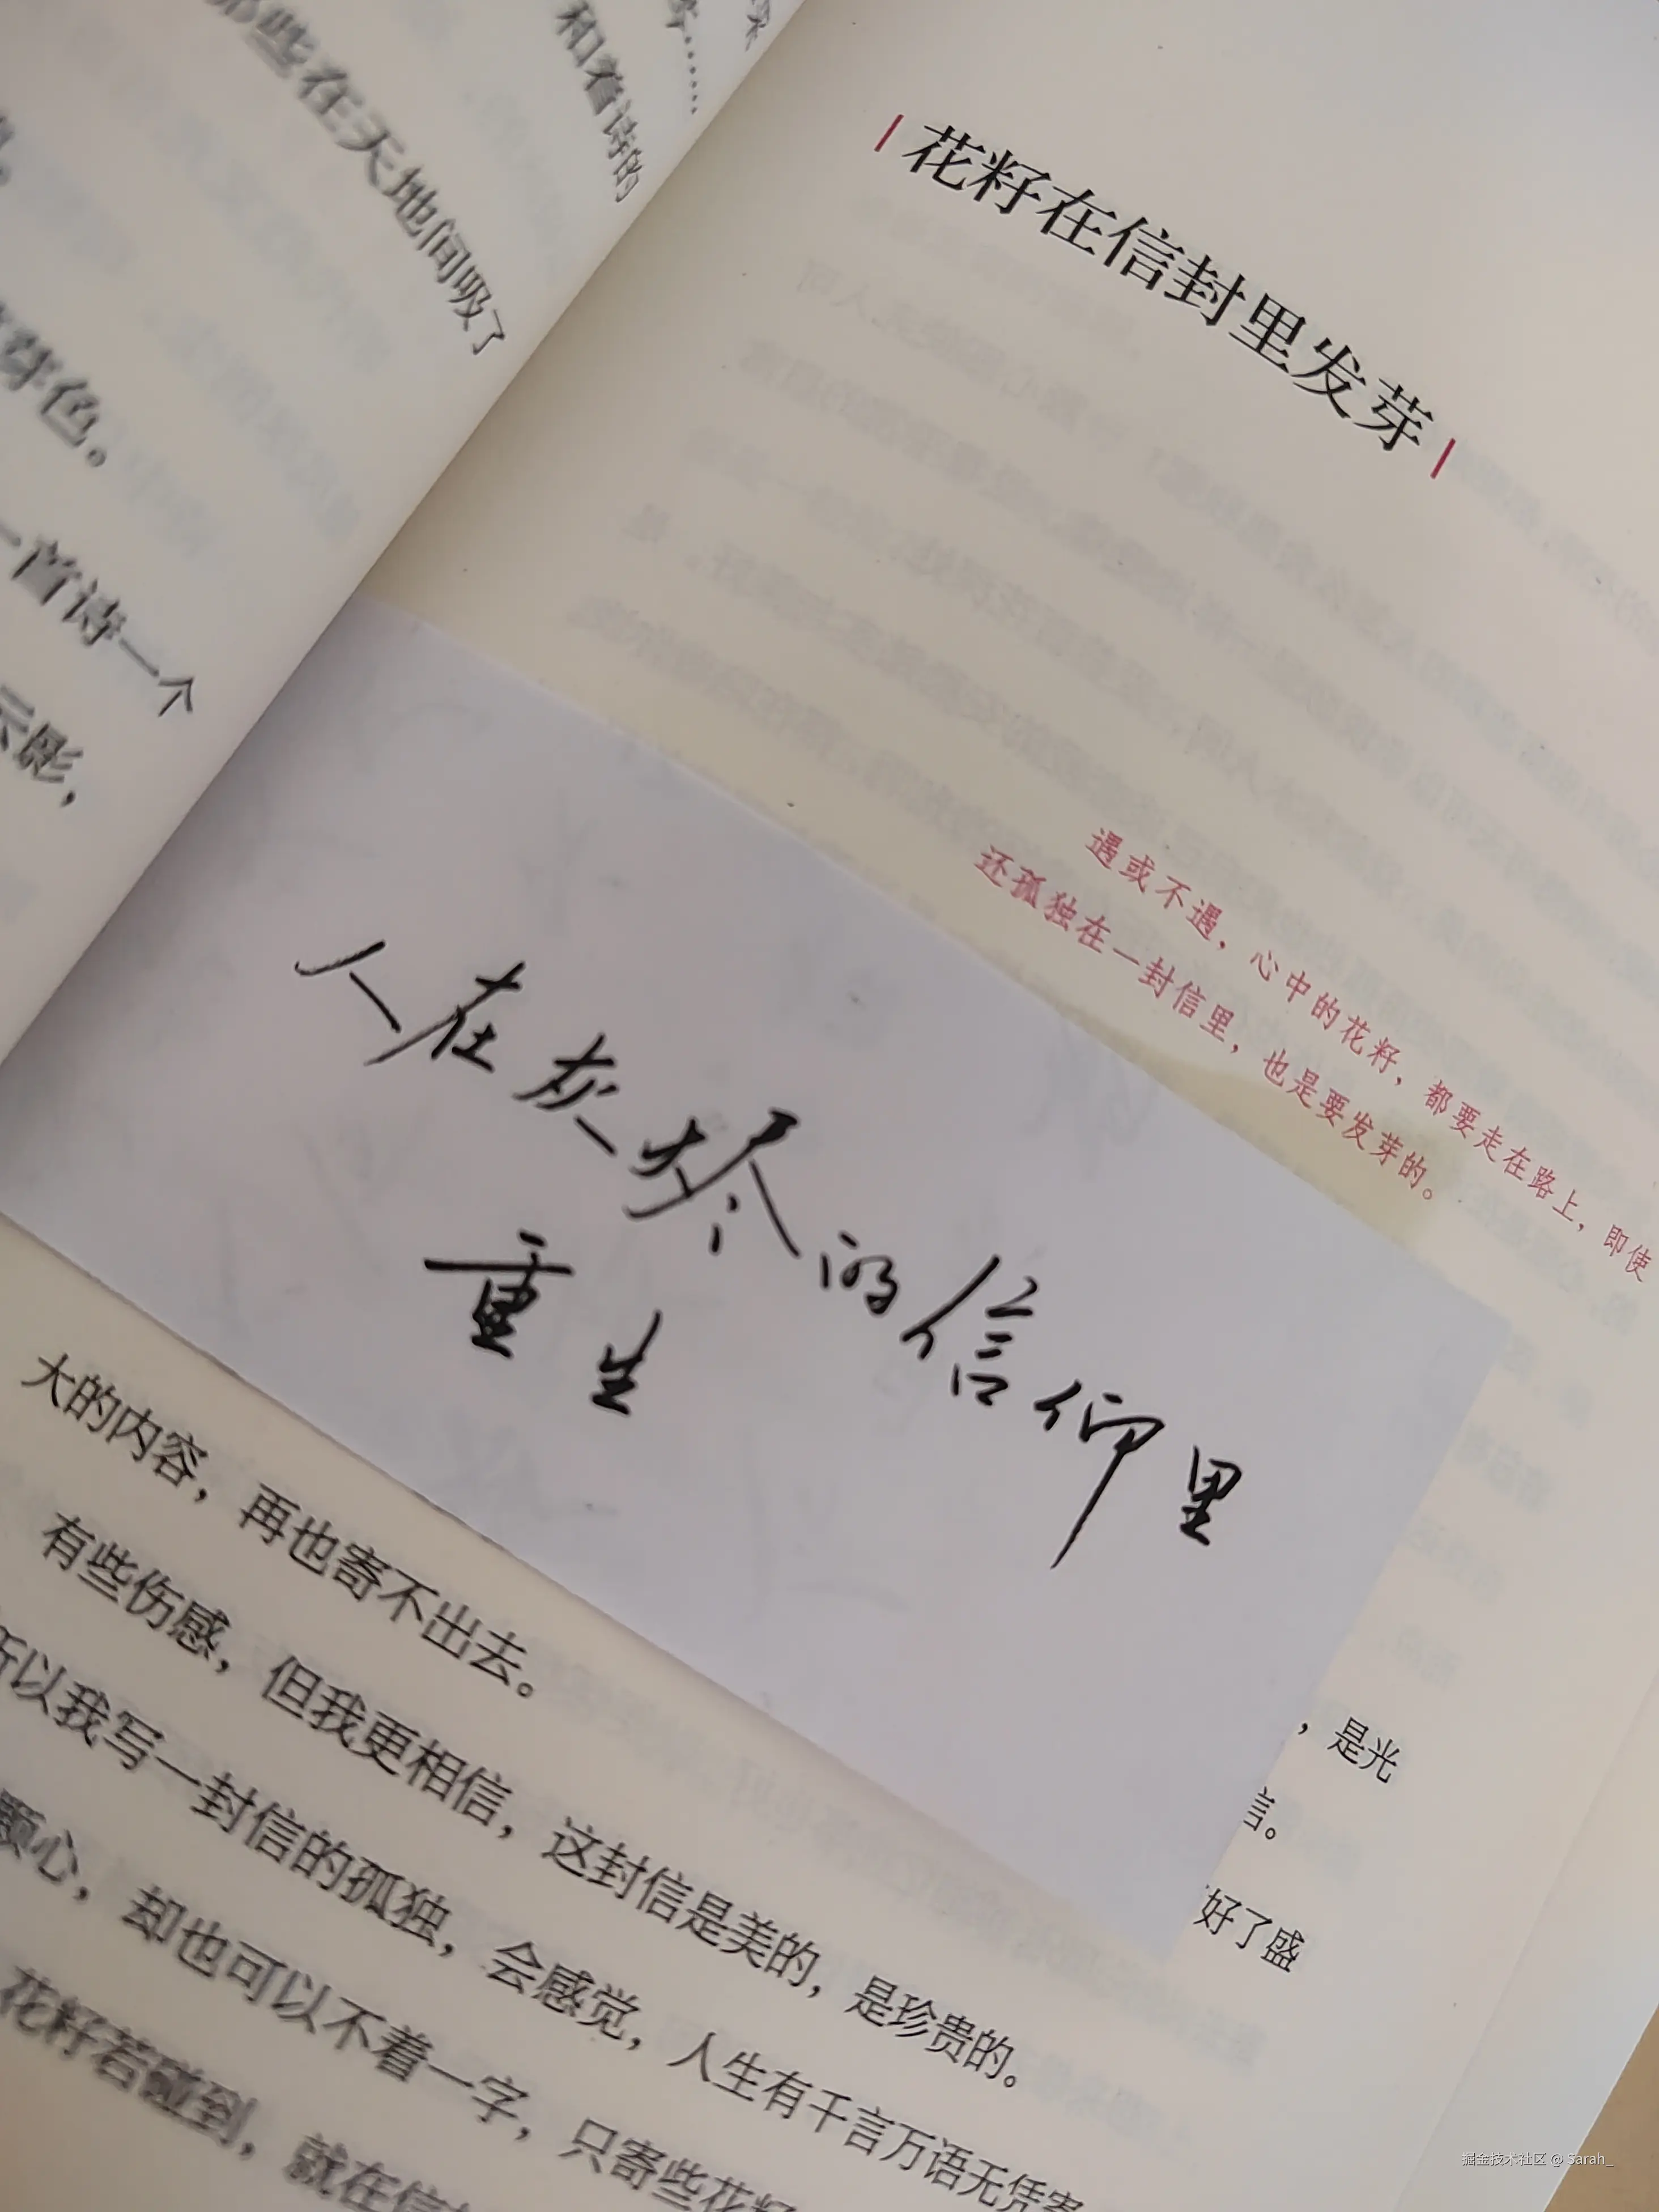 那些在天地间吸了
和着诗的
芽色。
一首诗一个
云影，
花籽在信封里发芽
遇或不遇，心中的花籽，都要走在路上，即使
还孤独在一封信里，也是要发芽的。
人在灰烬的信仰里
重生
，是光
信。
好了盛
大的内容，再也寄不出去。
有些伤感，但我更相信，这封信是美的，是珍贵的。
所以我写一封信的孤独，会感觉，人生有千言万语无凭寄
颗心，却也可以不着一字，只寄些花籽
花籽若碰到，就在信封
掘金技术社区 @ Sarah_